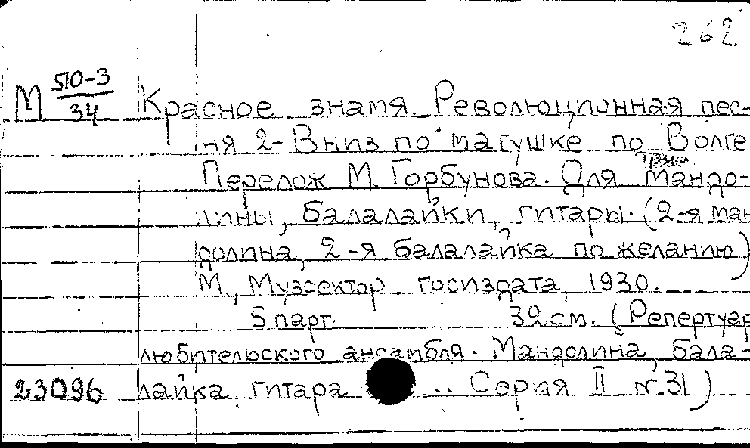 262
М 510-3/34 Красное знамя. Революционная пес-
ня 2- Вниз по матушке по Волге
Перелож М. Горбунова. Для мандо-
лины, балалайки, гитары. (2-я ман
долина, 2-я балалайка по желанию)
М., Музсектор госиздата, 1930.
5 парт. 32 см. (Репертуар
любительского ансамбля. Мандолина, бала-
23096 лайка, гитара ... Серия II № 31)